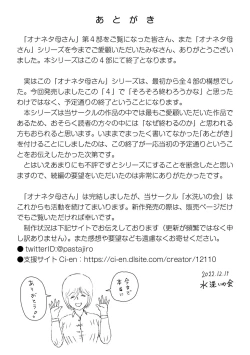 あとがき
「オナネタ母さん」第４部をご覧になった皆さん、また「オナネタ母
さん」シリーズを今までご愛顧いただいたみなさん、ありがとうござい
ました。本シリーズはこの４部にて終了となります。
実はこの「オナネタ母さん」シリーズは、最初から全４部の構想でし
た。今回発売しましたこの「４」で「そろそろ終わろうかな」と思った
わけではなく、予定通りの終了ということになります。
本シリーズは当サークルの作品の中では最もご愛顧いただいた作品で
あるため、おそらく読者の方々の中には「なぜ終わるのか」と思われる
方もおられると思います。いままでまったく書いてなかった「あとがき」
を付けることにしましたのは、この終了が一応当初の予定通りというこ
とをお伝えしたかった次第です。
とはいえあまりにも不評でずっとシリーズにすることを断念したと思い
ますので、続編の要望をいただいたのはありがたいことだと思います。
「オナネタ母さん」は完結しましたが、当サークル「水洗いの会」は
これからも活動を続けてまいります。新作発売の際は、販売ページだけ
でもご覧いただければ幸いです。
制作状況は下記サイトでお伝えしております（更新が頻繁ではなく申
し訳ありません）。また感想や要望なども遠慮なくお寄せください。
● twitterID:@pastajiro
●支援サイト Ci-en：https://ci-en.dlsite.com/creator/12110
2022.12.17
水洗いの会